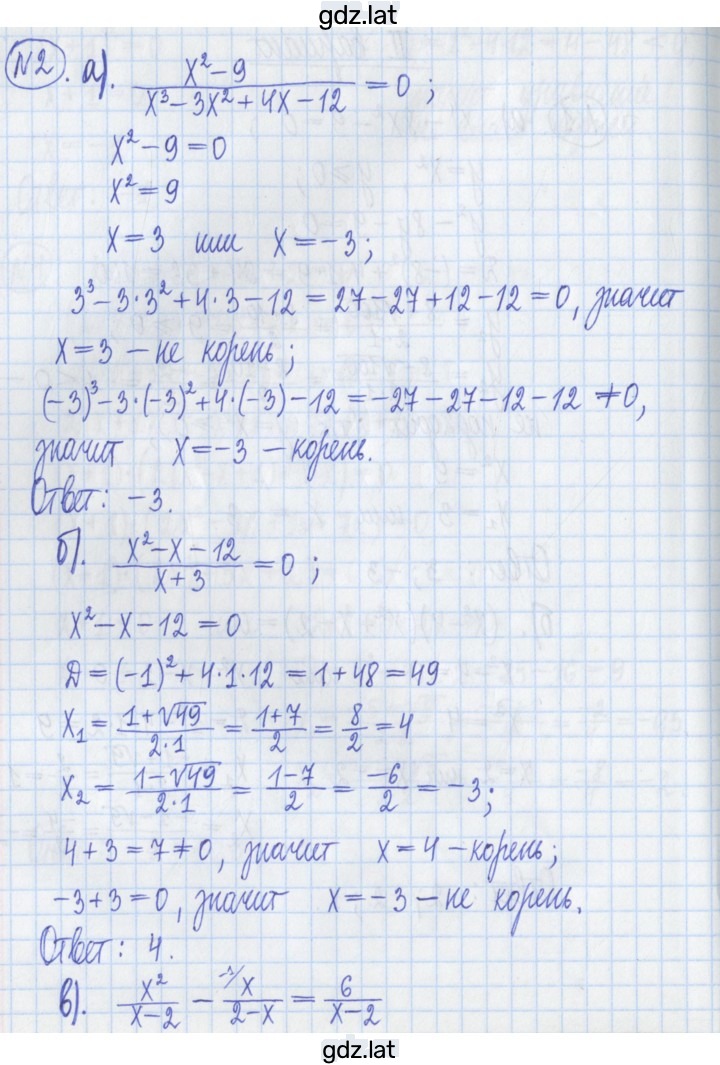 gdz.lat
№2. а). (x²-9)/(x³-3x²+4x-12) = 0;
x²-9=0
x²=9
x=3 или x=-3;
3³-3·3²+4·3-12=27-27+12-12=0, значит
x=3 - не корень;
(-3)³-3·(-3)²+4·(-3)-12=-27-27-12-12≠0,
значит x=-3 - корень.
Ответ: -3.
б). (x²-x-12)/(x+3) = 0;
x²-x-12=0
Д=(-1)²+4·1·12=1+48=49
x₁ = (1+√49)/(2·1) = (1+7)/2 = 8/2 = 4
x₂ = (1-√49)/(2·1) = (1-7)/2 = -6/2 = -3;
4+3=7≠0, значит x=4 - корень;
-3+3=0, значит x=-3 - не корень.
Ответ: 4.
в). x²/(x-2) - ⁻¹⁾x/(2-x) = 6/(x-2)
gdz.lat